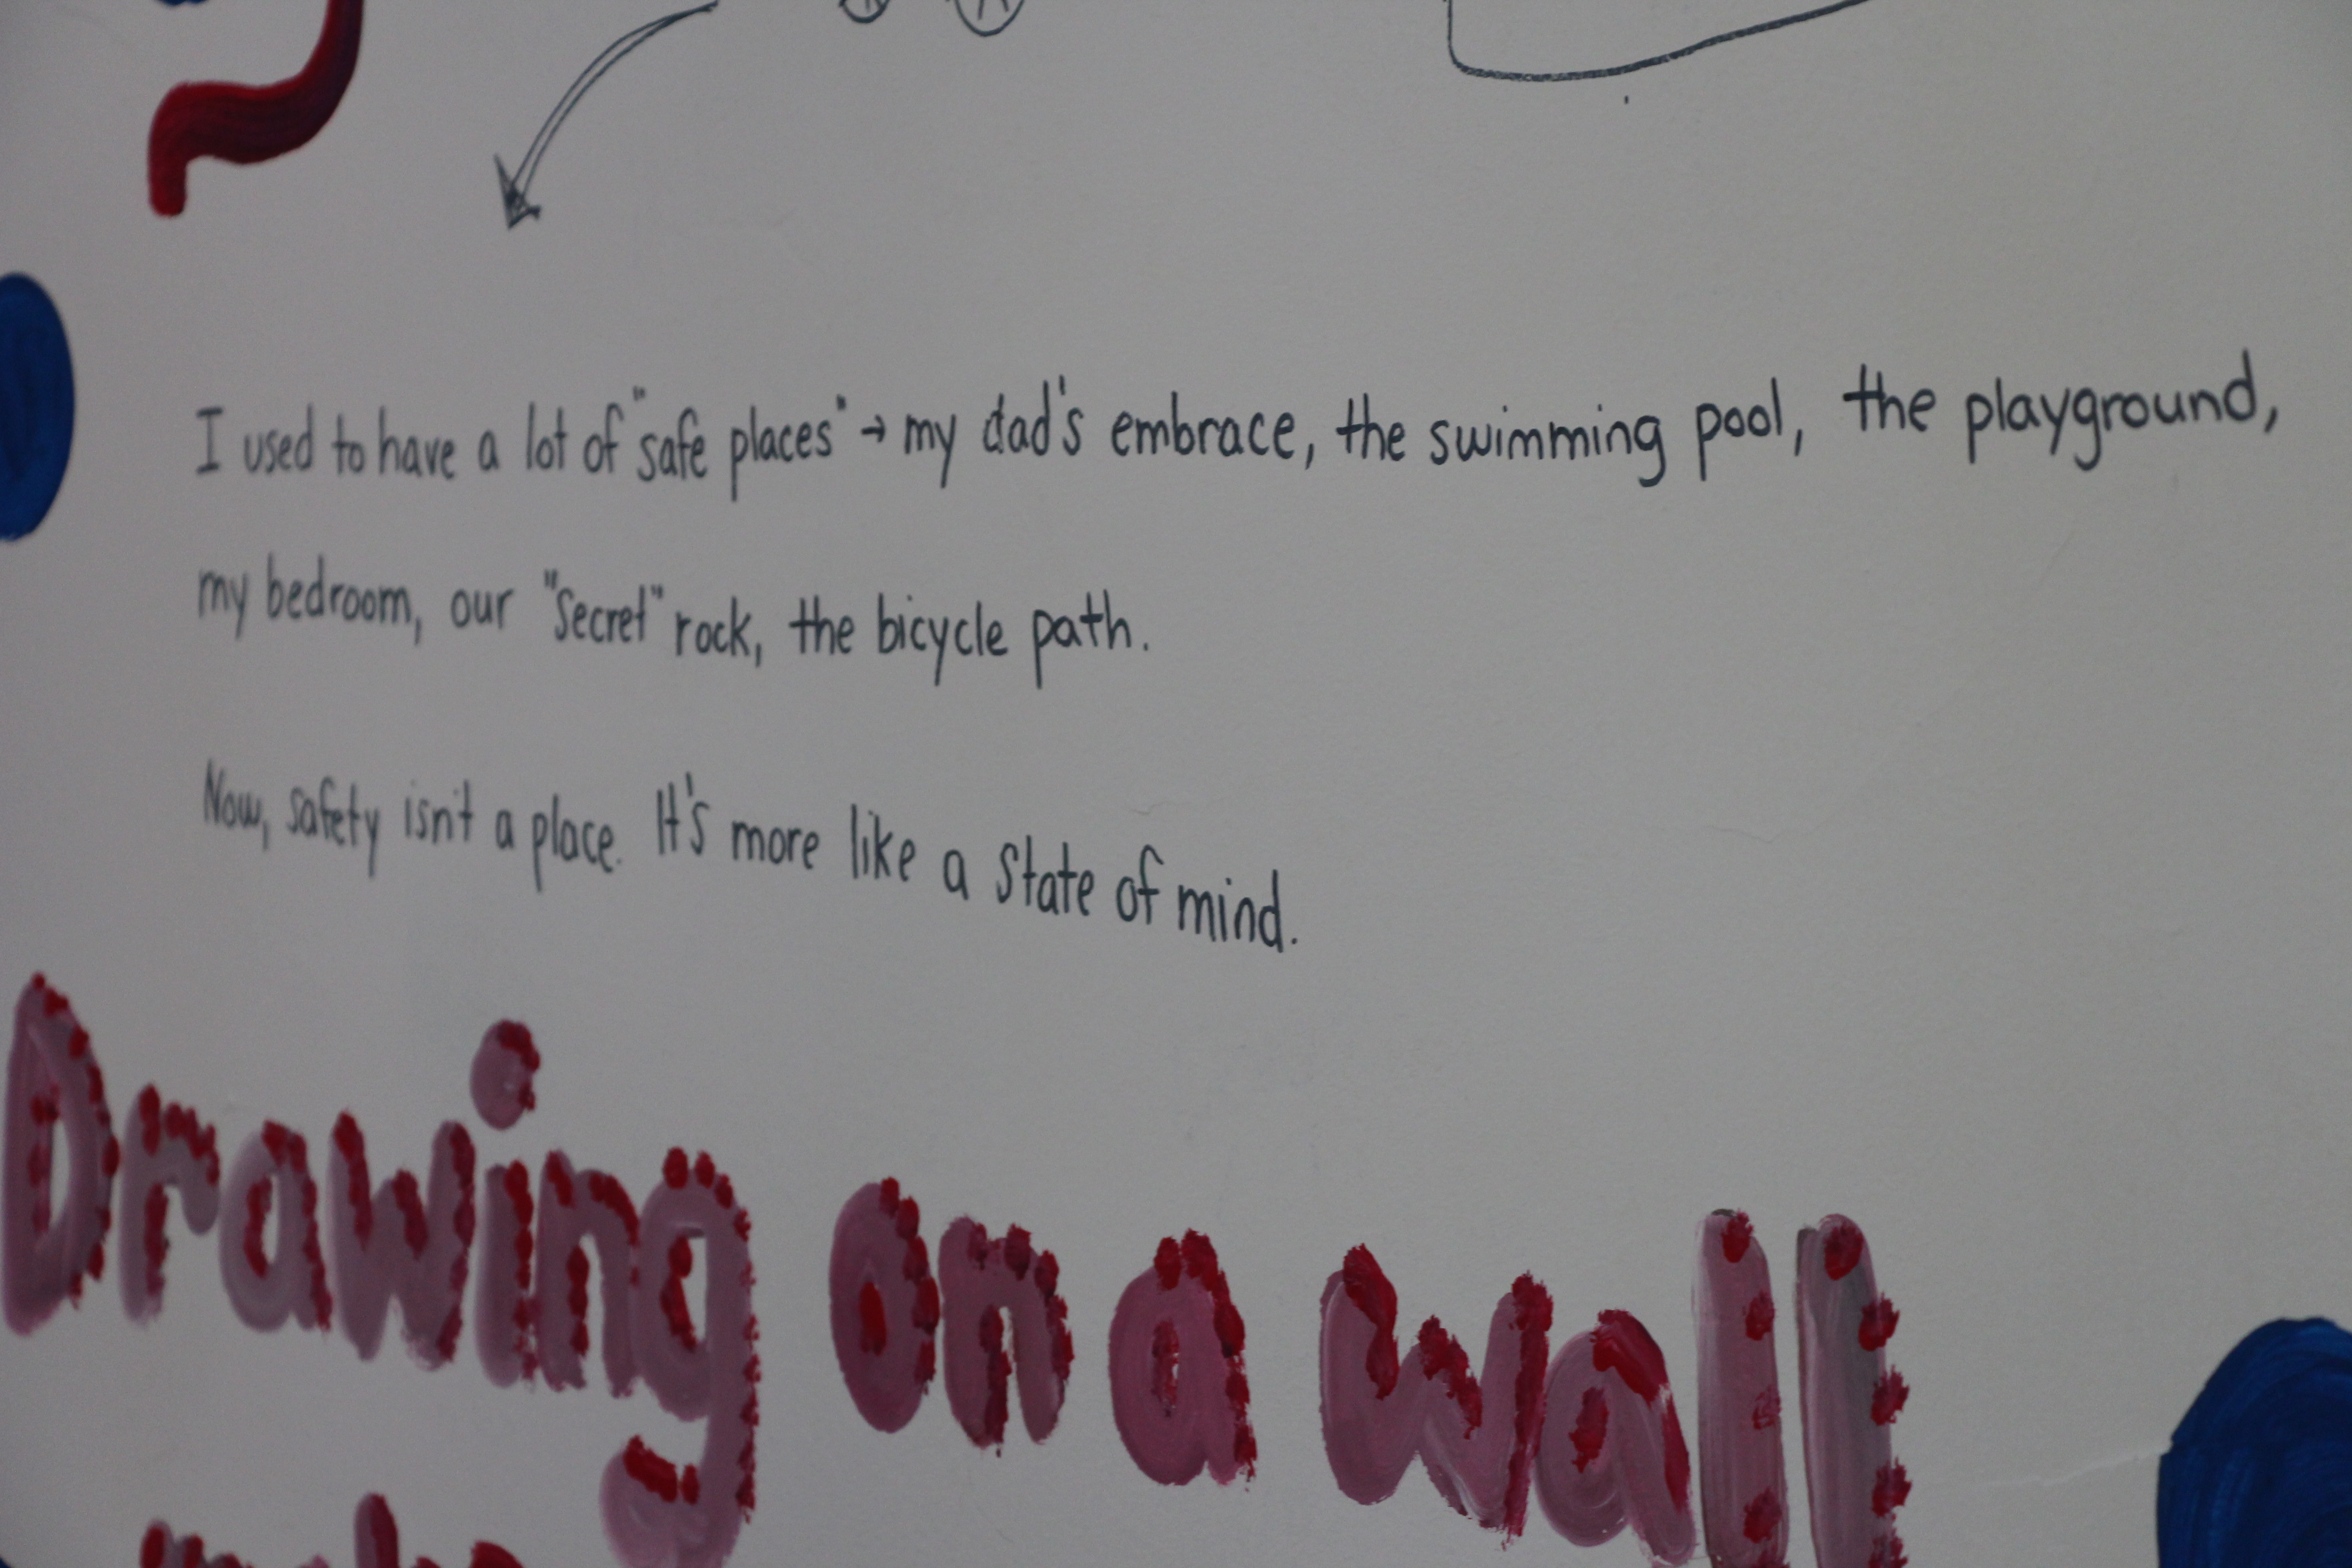 I used to have a lot of "safe places" → my dad's embrace, the swimming pool, the playground,
my bedroom, our "Secret" rock, the bicycle path.
Now, safety isn't a place. It's more like a state of mind.
Drawing on a wall